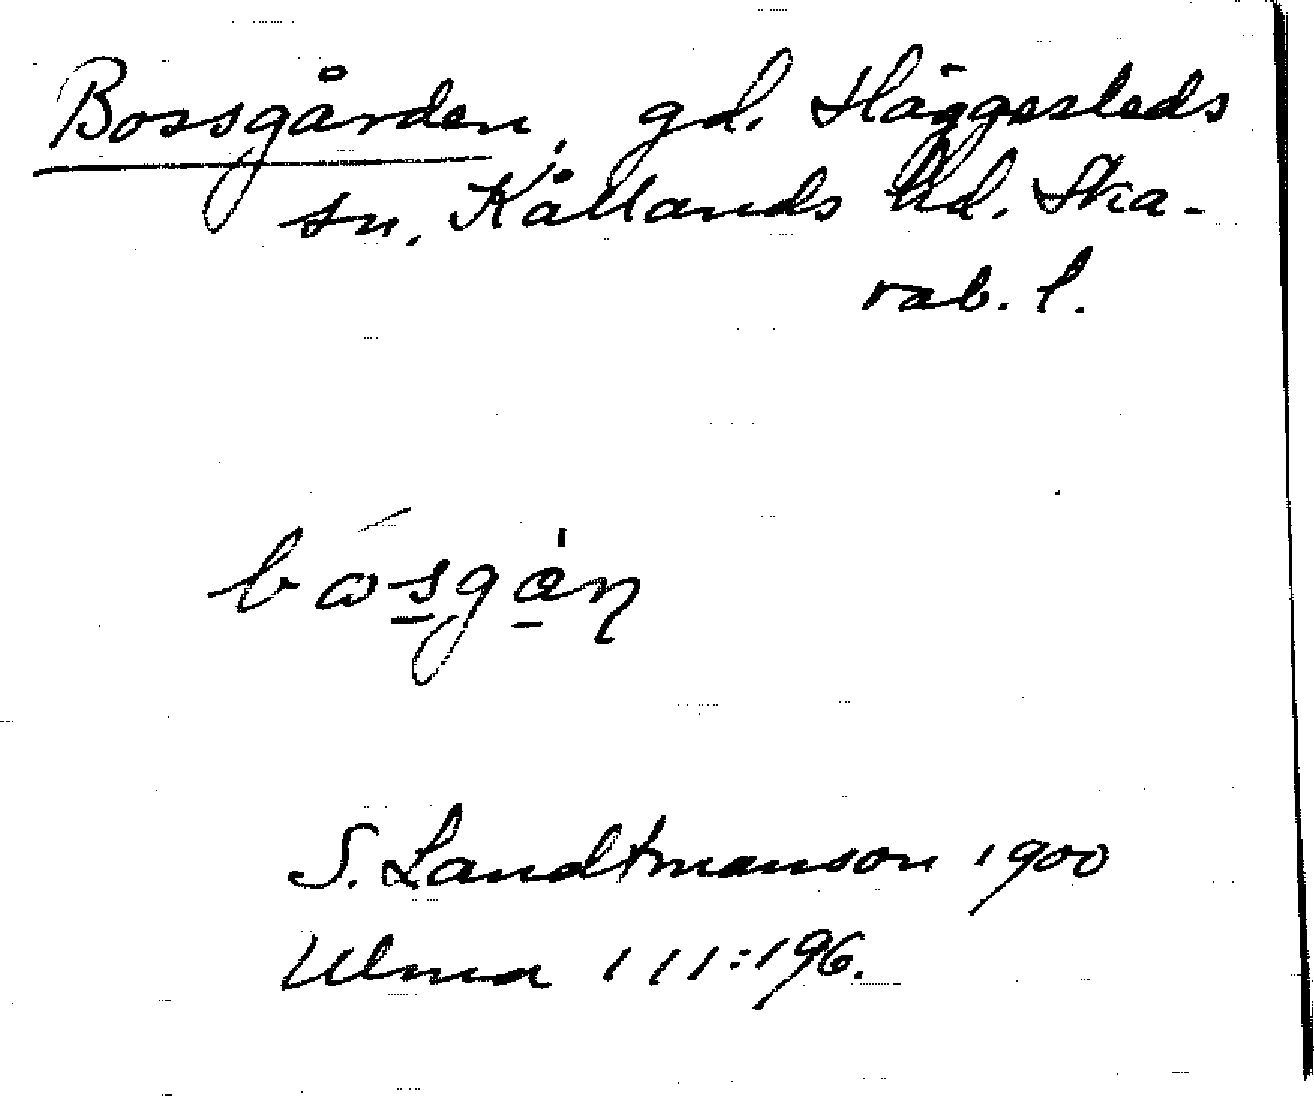 Bossgården, gd. Häggesleds
sn. Kållands hd. Ska-
rab. l.
bósgȧn
S. Landtmanson 1900
Ulma 111:196.